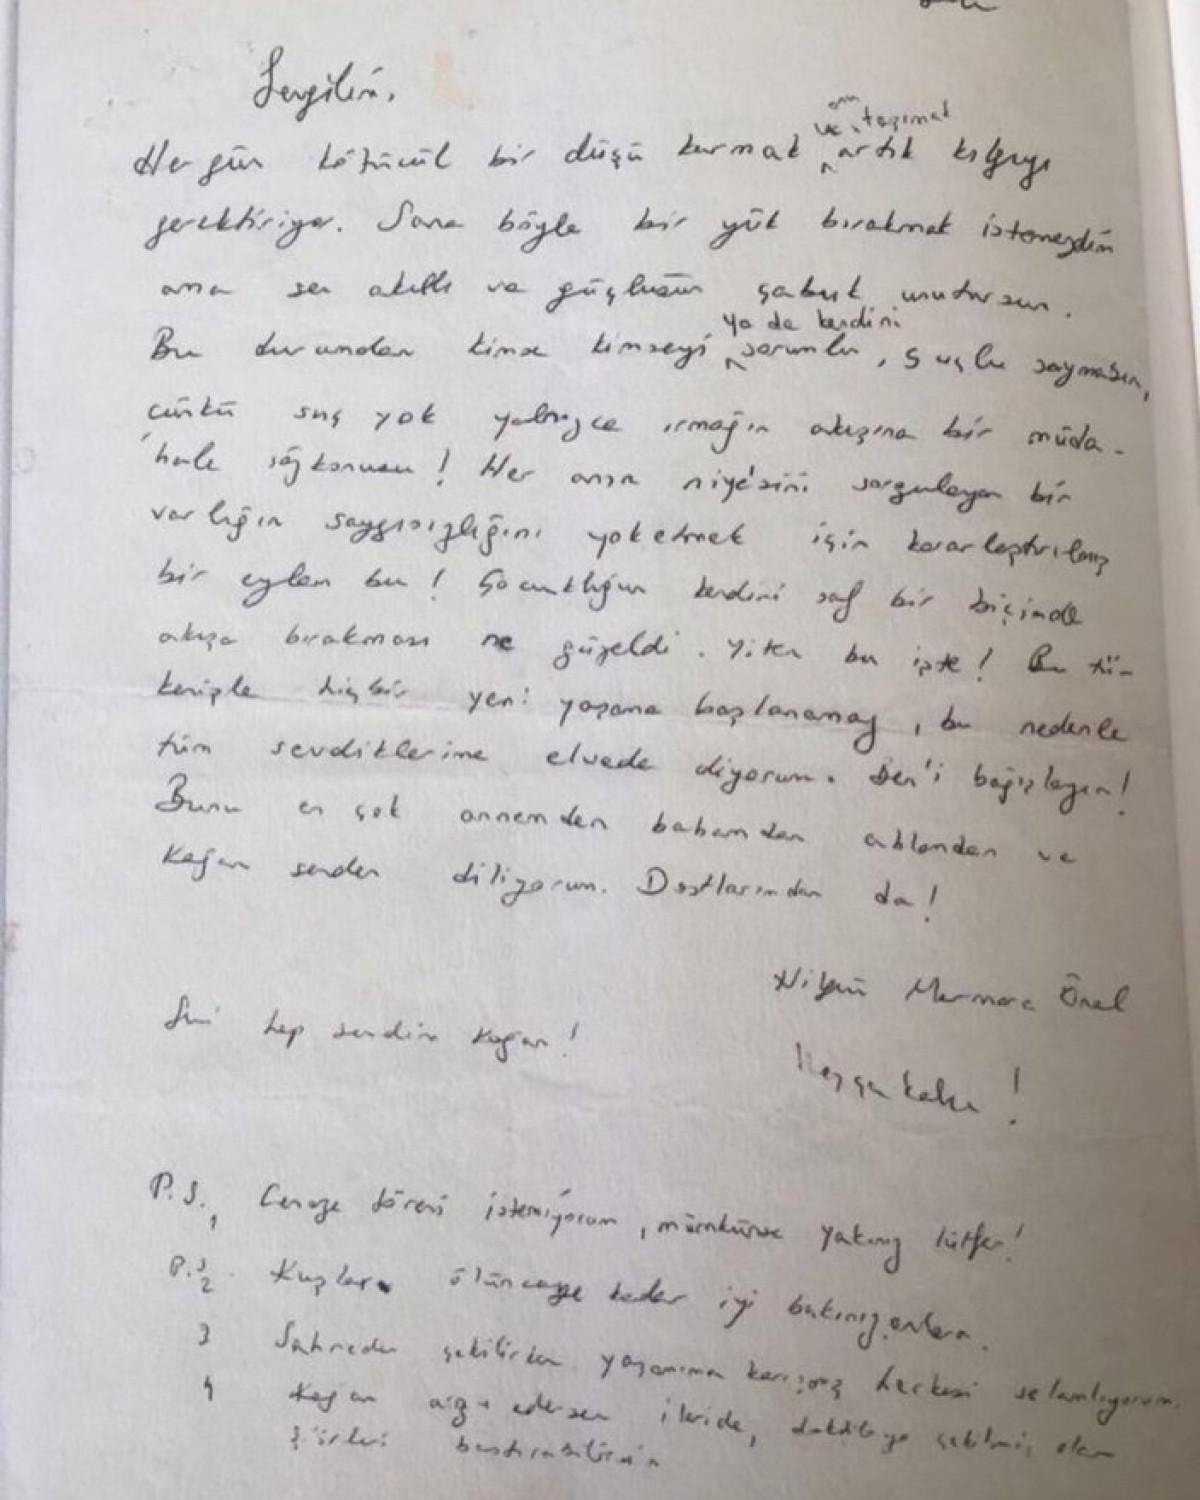 Sevgilim,
onu
ve taşımak
Her gün kötücül bir düşü kurmak artık kılgıyı
gerektiriyor. Sana böyle bir yük bırakmak istemezdim
ama sen akıllı ve güçlüsün çabuk unutursun.
ya da kendini
Bu durumdan kimse kimseyi sorumlu, suçlu saymasın,
çünkü suç yok yalnızca ırmağın akışına bir müda-
hale sözkonusu! Her anın niye'sini sorgulayan bir
varlığın saygısızlığını yoketmek için kararlaştırılmış
bir eylem bu! Çocukluğun kendini saf bir biçimde
akışa bırakması ne güzeldi. Yiten bu işte! Bu tü-
kenişle hiçbir yeni yaşama başlanamaz, bu nedenle
tüm sevdiklerime elveda diyorum. Ben'i bağışlayın!
Bunu en çok annemden babamdan ablamdan ve
Kağan senden diliyorum. Dostlarımdan da!
Nilgün Marmara Önal
hep sevdim Kağan!
Hoşça kalın!
P.S.1 Cenaze töreni istemiyorum, mümkünse yakınız lütfen!
P.S.2. Kuşlara ölünceye kadar iyi bakınız onlara.
3 Sahneden çekilirken yaşamıma karışmış herkesi selamlıyorum.
4 Kağan arzu edersen ileride, daktiloya çekilmiş olan
şiirleri bastırabilirsin